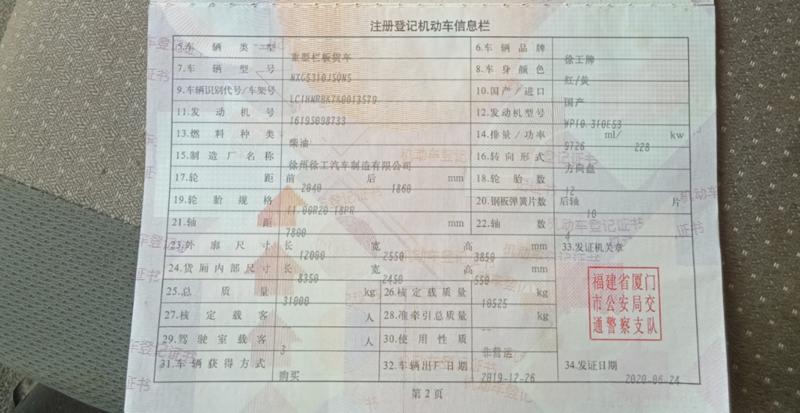 注册登记机动车信息栏
5.车辆类型 重型栏板货车 6.车辆品牌 徐工牌
7.车辆型号 NXG5310JSQN5 8.车身颜色 红/黄
9.车辆识别代号/车架号 LC1HMRBK7K0013579 10.国产/进口 国产
11.发动机号 1619S098733 12.发动机型号 WP10.310E53
13.燃料种类 柴油 14.排量/功率 9726 ml/ 228 kw
15.制造厂名称 徐州徐工汽车制造有限公司 16.转向形式 方向盘
17.轮距 前 2040 后 1860 mm 18.轮胎数 12
19.轮胎规格 11.00R20 18PR 20.钢板弹簧片数 后轴 10 片
21.轴距 7800 mm 22.轴数 4
23.外廓尺寸 长 12000 宽 2550 高 3850 mm 33.发证机关章
24.货厢内部尺寸 长 8350 宽 2450 高 550 mm
福建省厦门
市公安局交
通警察支队
25.总质量 31000 kg 26.核定载质量 10525 kg
27.核定载客 人 28.准牵引总质量 -- kg
29.驾驶室载客 3 人 30.使用性质 非营运
31.车辆获得方式 购买 32.车辆出厂日期 2019-12-26 34.发证日期 2020-06-24
第2页